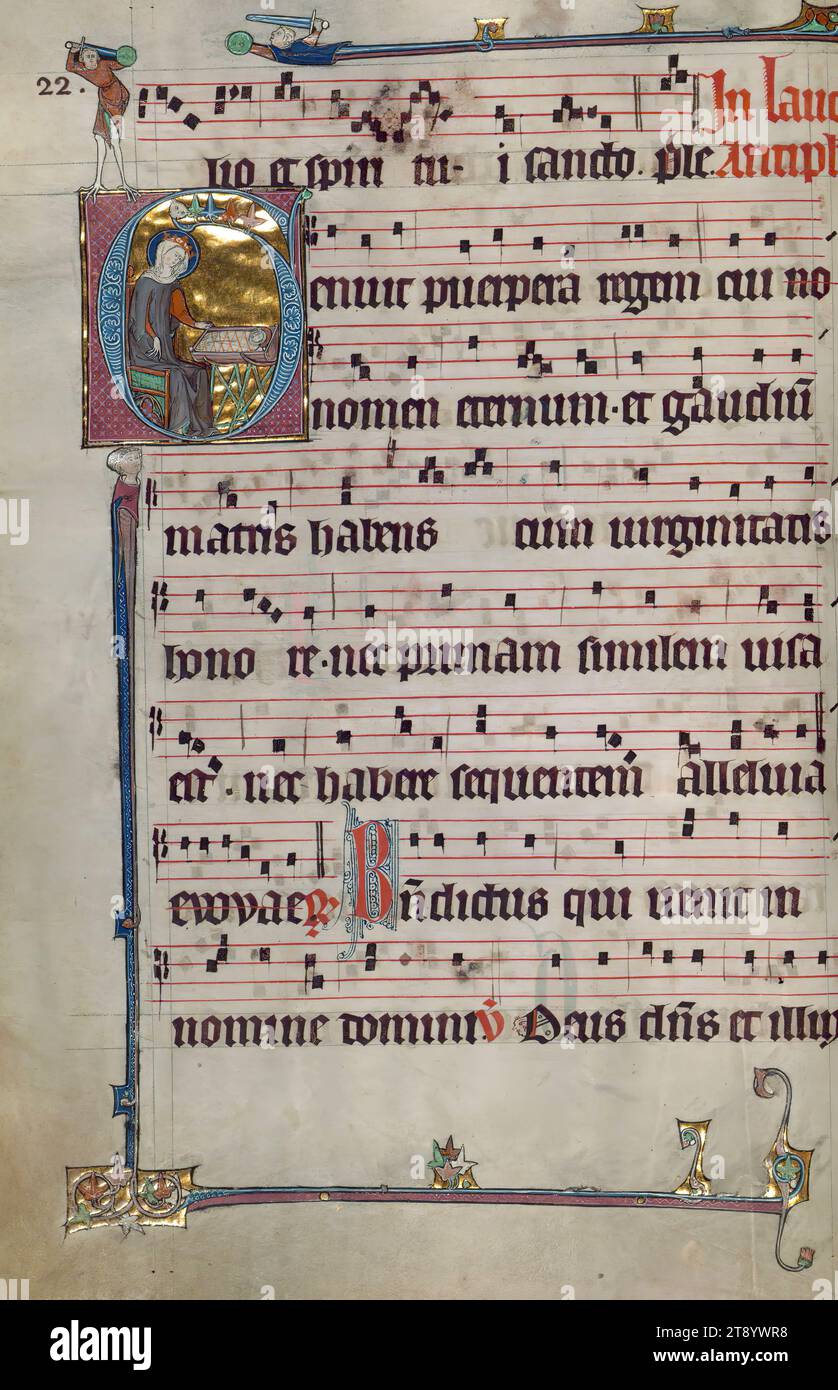 22.
In laud
lio et spiri tu- i sancto. ple. Antiph
enuit puerpera regem cui no
nomen eternum. et gaudiū
matris habens cum uirginitatis
hono re. nec primam similem uisa
est. nec habere sequentem alleluia
evovae R Bn̄dictus qui uenit in
nomine domini v̄ Deus dn̄s et illux
alamy
alamy
Image ID: 2T8YWR8
www.alamy.com